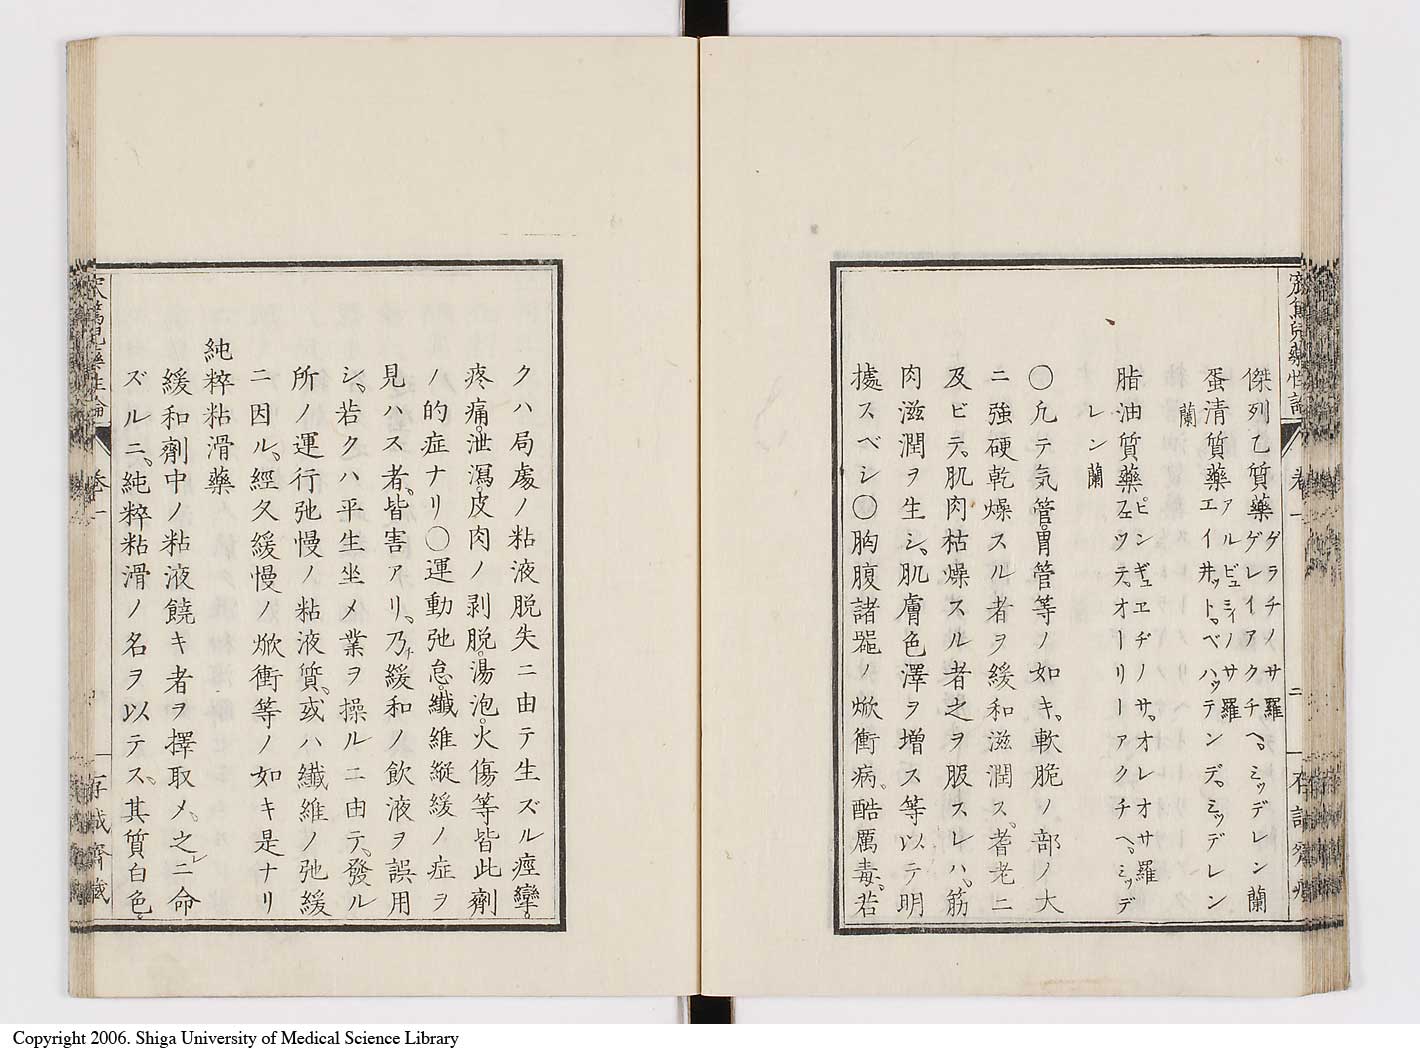 傑列乙質藥 ダラチノサ羅 ゲレイアクチヘ。ミッデレン蘭
蛋清質藥 アルビュミィノサ羅 エイ井ット。ベハッテンデ。ミッデレン
蘭
脂油質藥 ピンギュエヂノサ。オレオサ羅 フェウテ。オーリーアクチヘ。ミッデ
レン蘭
〇凢テ気管。胃管等ノ如キ。軟脆ノ部ノ大
ニ強硬乾燥スル者ヲ緩和滋潤ス。耆老ニ
及ビテ。肌肉枯燥スル者之ヲ服スレハ。筋
肉滋潤ヲ生シ。肌膚色澤ヲ増ス等以テ明
據スベシ〇胸腹諸噐ノ焮衝病。酷厲毒。若
卷一
二
クハ局處ノ粘液脱失ニ由テ生ズル痙攣。
疼痛。泄瀉。皮肉ノ剥脱。湯泡。火傷等皆此劑
ノ的症ナリ〇運動弛怠。纎維縦緩ノ症ヲ
見ハス者。皆害アリ。乃チ緩和ノ飲液ヲ誤用
シ。若クハ平生坐メ業ヲ操ルニ由テ。發ル
所ノ運行弛慢ノ粘液質。或ハ纎維ノ弛緩
ニ因ル。經久緩慢ノ焮衝等ノ如キ是ナリ
純粹粘滑藥
緩和劑中ノ粘液饒キ者ヲ擇取メ。之ニ命
ズルニ。純粹粘滑ノ名ヲ以テス。其質白色。
卷一
Copyright 2006. Shiga University of Medical Science Library